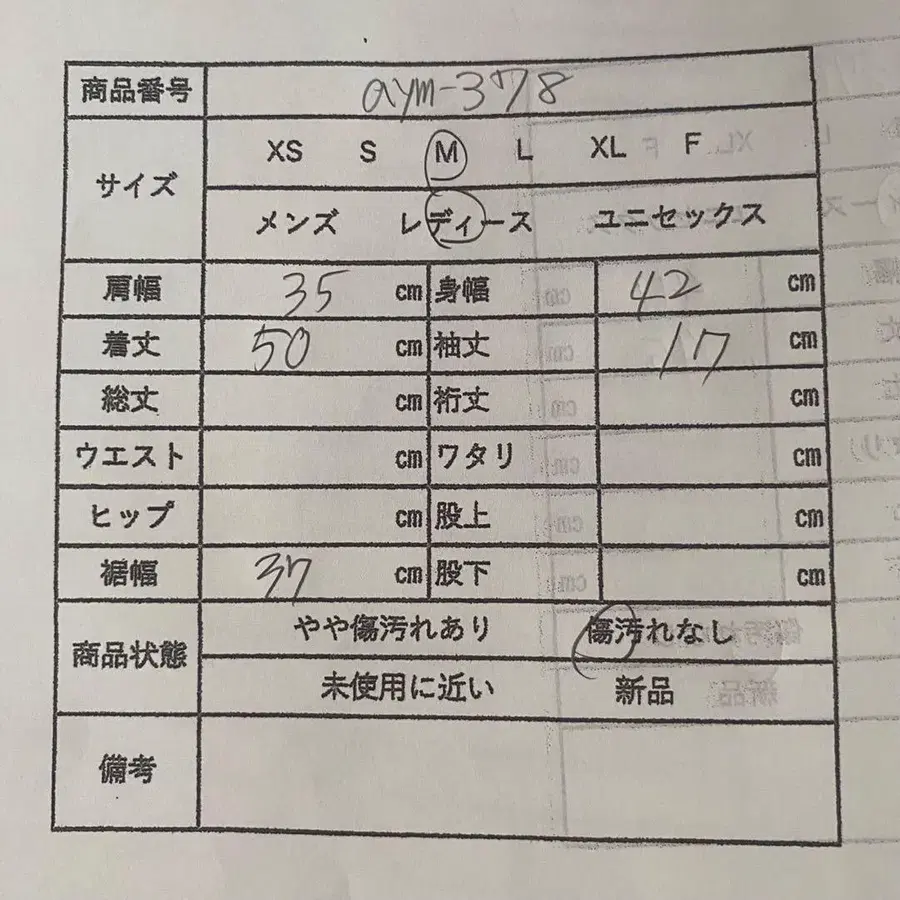 商品番号 aym-378
サイズ XS S M L XL F
メンズ レディース ユニセックス
肩幅 35 cm 身幅 42 cm
着丈 50 cm 袖丈 17 cm
総丈 cm 裄丈 cm
ウエスト cm ワタリ cm
ヒップ cm 股上 cm
裾幅 37 cm 股下 cm
商品状態 やや傷汚れあり 傷汚れなし
未使用に近い 新品
備考